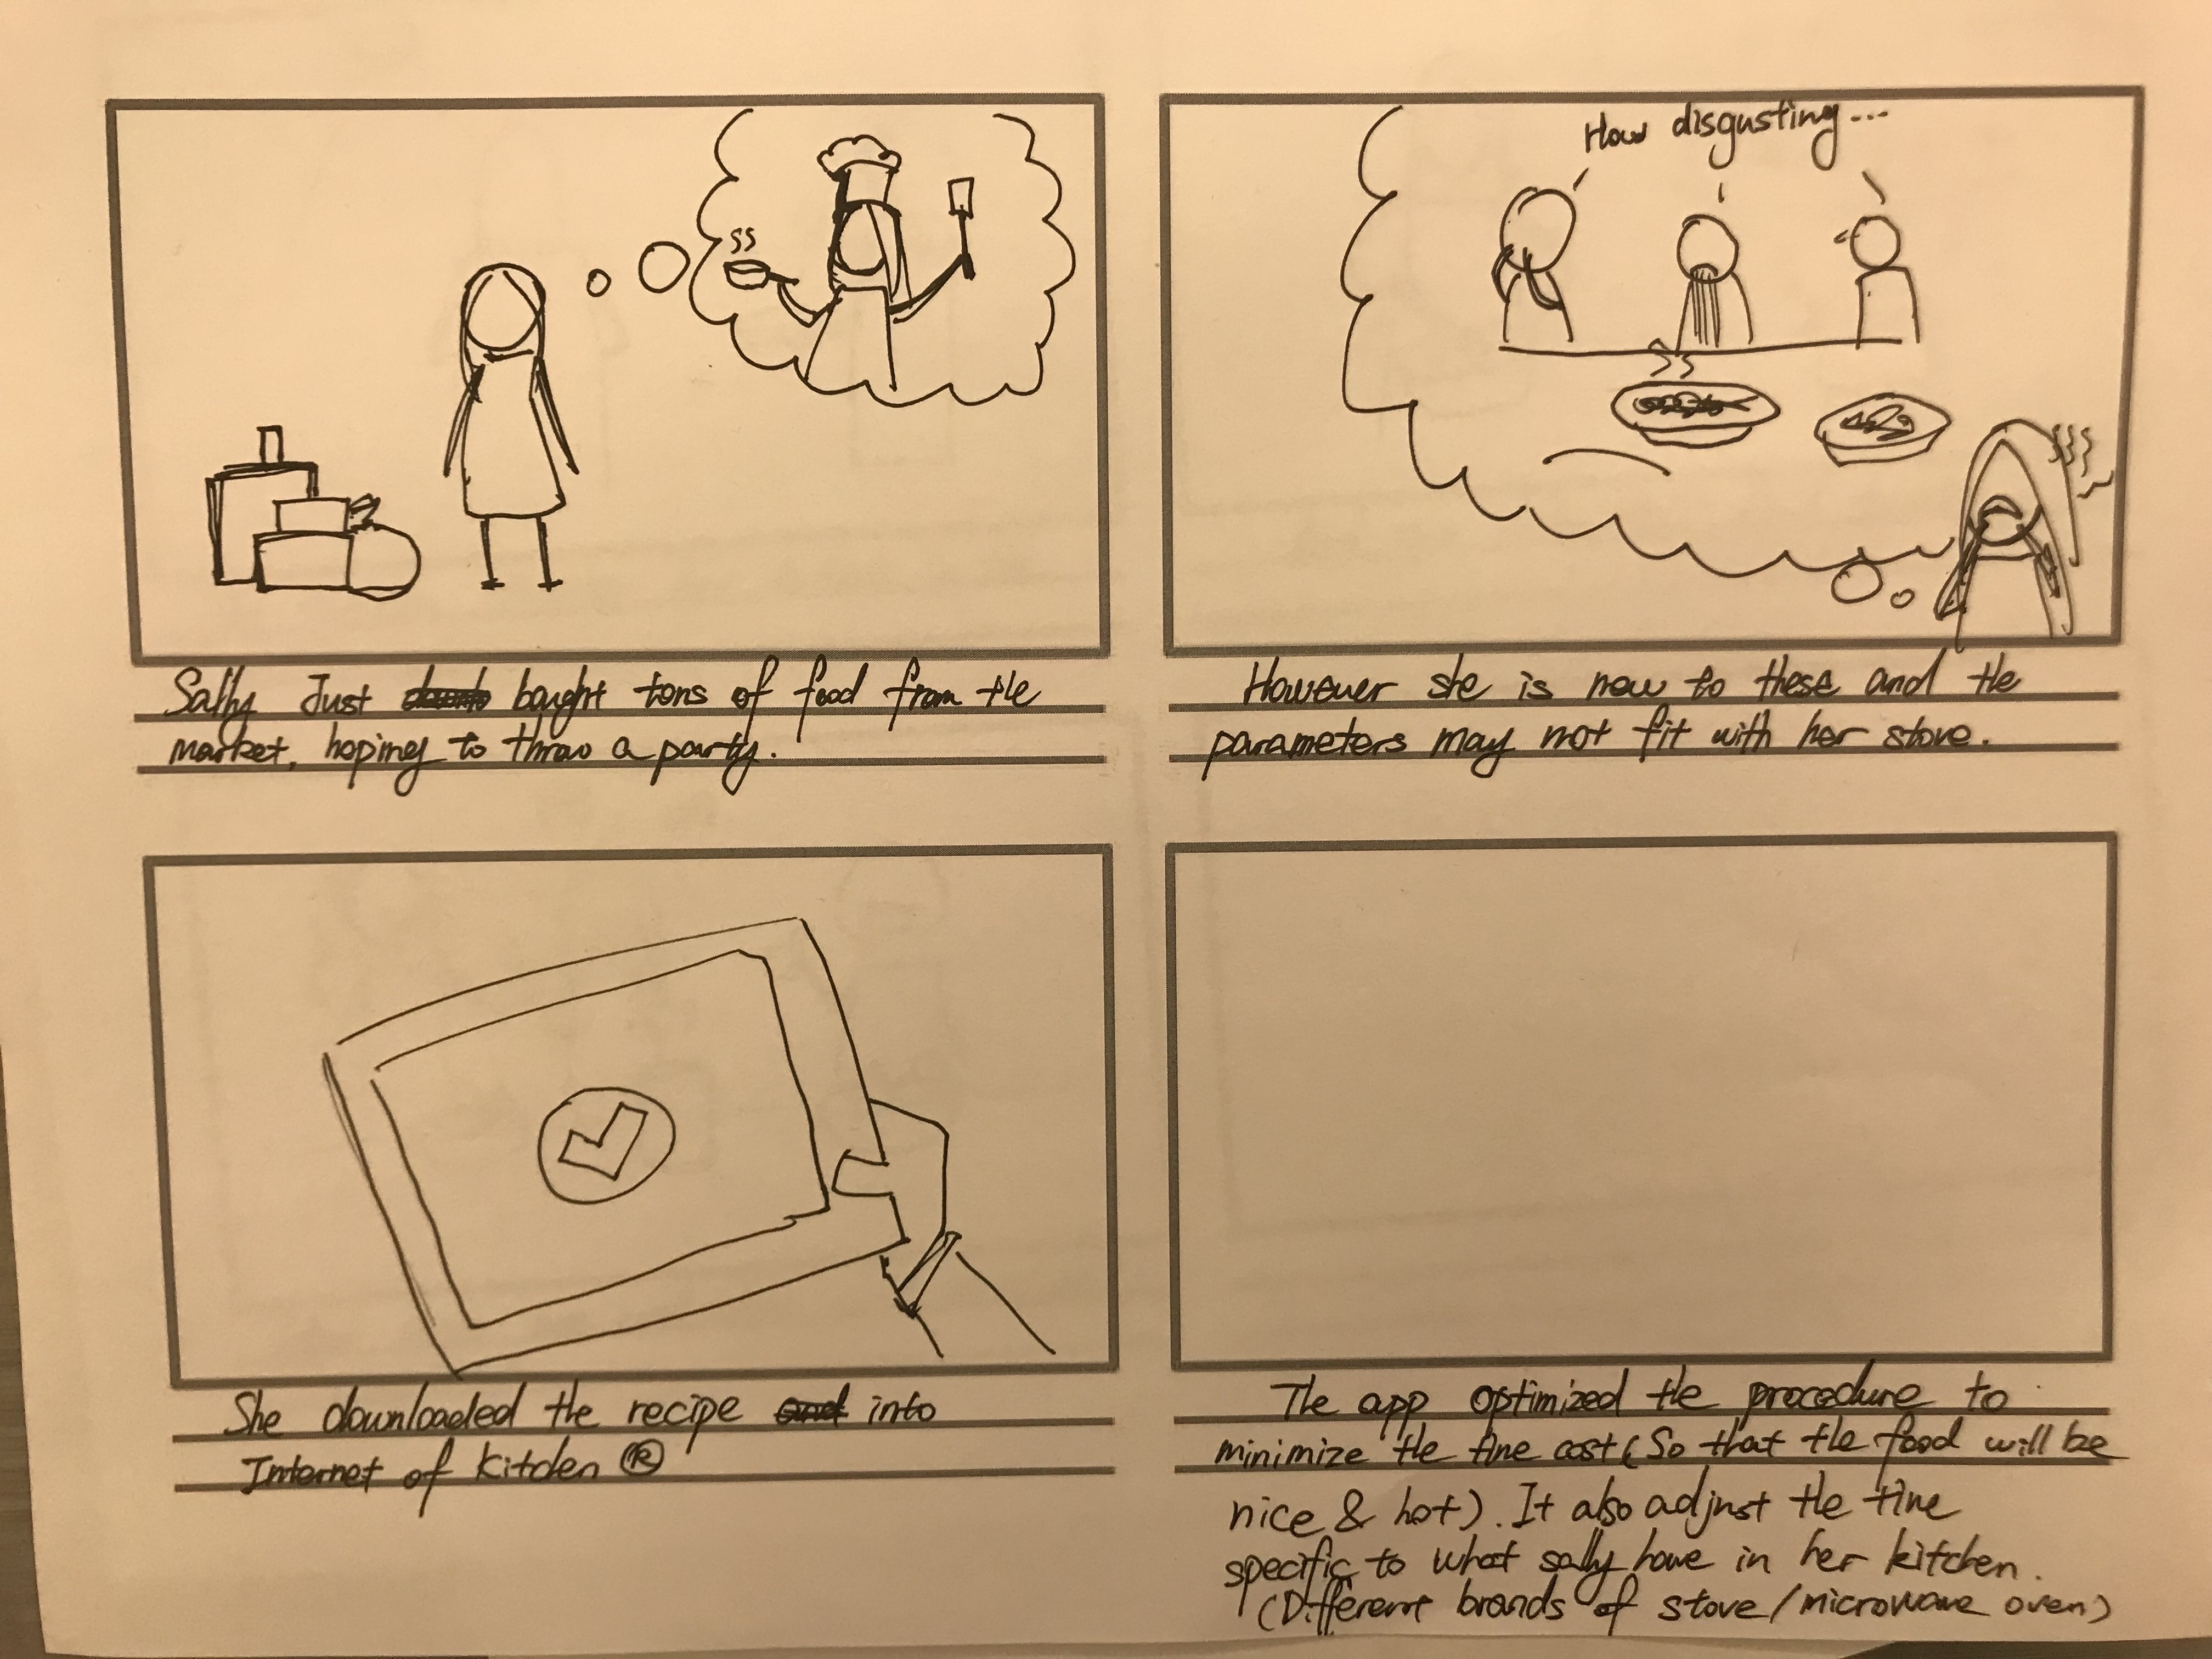 How disgusting...
Sally Just bought tons of food from the
market, hoping to throw a party.
However she is new to these and the
parameters may not fit with her stove.
She downloaded the recipe and into
Internet of Kitchen ®
The app optimized the procedure to
minimize the time cost (So that the food will be
nice & hot). It also adjust the time
specific to what sally have in her kitchen.
(Different brands of stove/microwave oven)